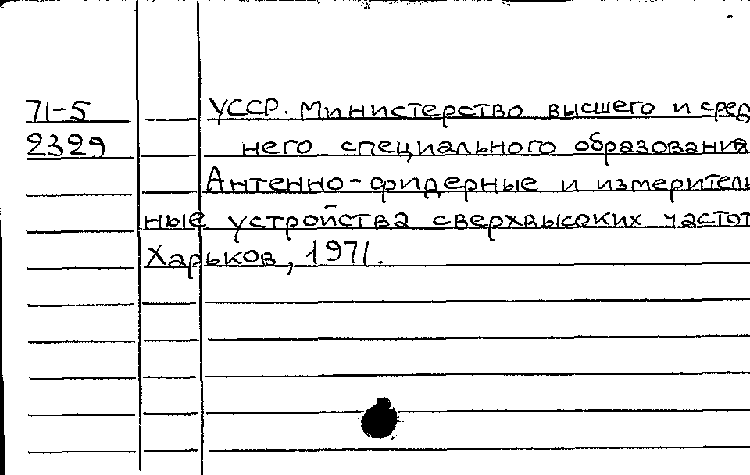 71-5 УССР. Министерство высшего и сред
2329 него специального образования
Антенно-фидерные и измеритель
ные устройства сверхвысоких частот
Харьков, 1971.